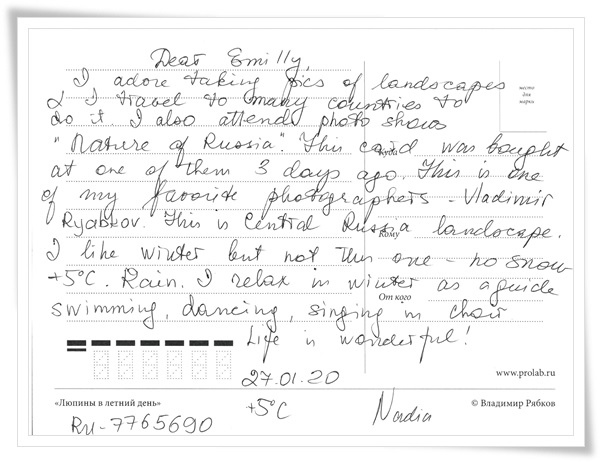 Dear Emilly,
I adore taking pics of landscapes
& I travel to many countries to
do it. I also attend photo shows
"Nature of Russia". This card was bought
at one of them 3 days ago. This is one
of my favorite photographers - Vladimir
Ryabkov. This is Central Russia landscape.
I like winter but not this one - no snow
+5°C. Rain. I relax in winter as a guide
swimming, dancing, singing in choir
Life is wonderful!
27.01.20
+5°C
место
для
марки
Куда
Кому
От кого
www.prolab.ru
«Люпины в летний день»
© Владимир Рябков
RU-7765690